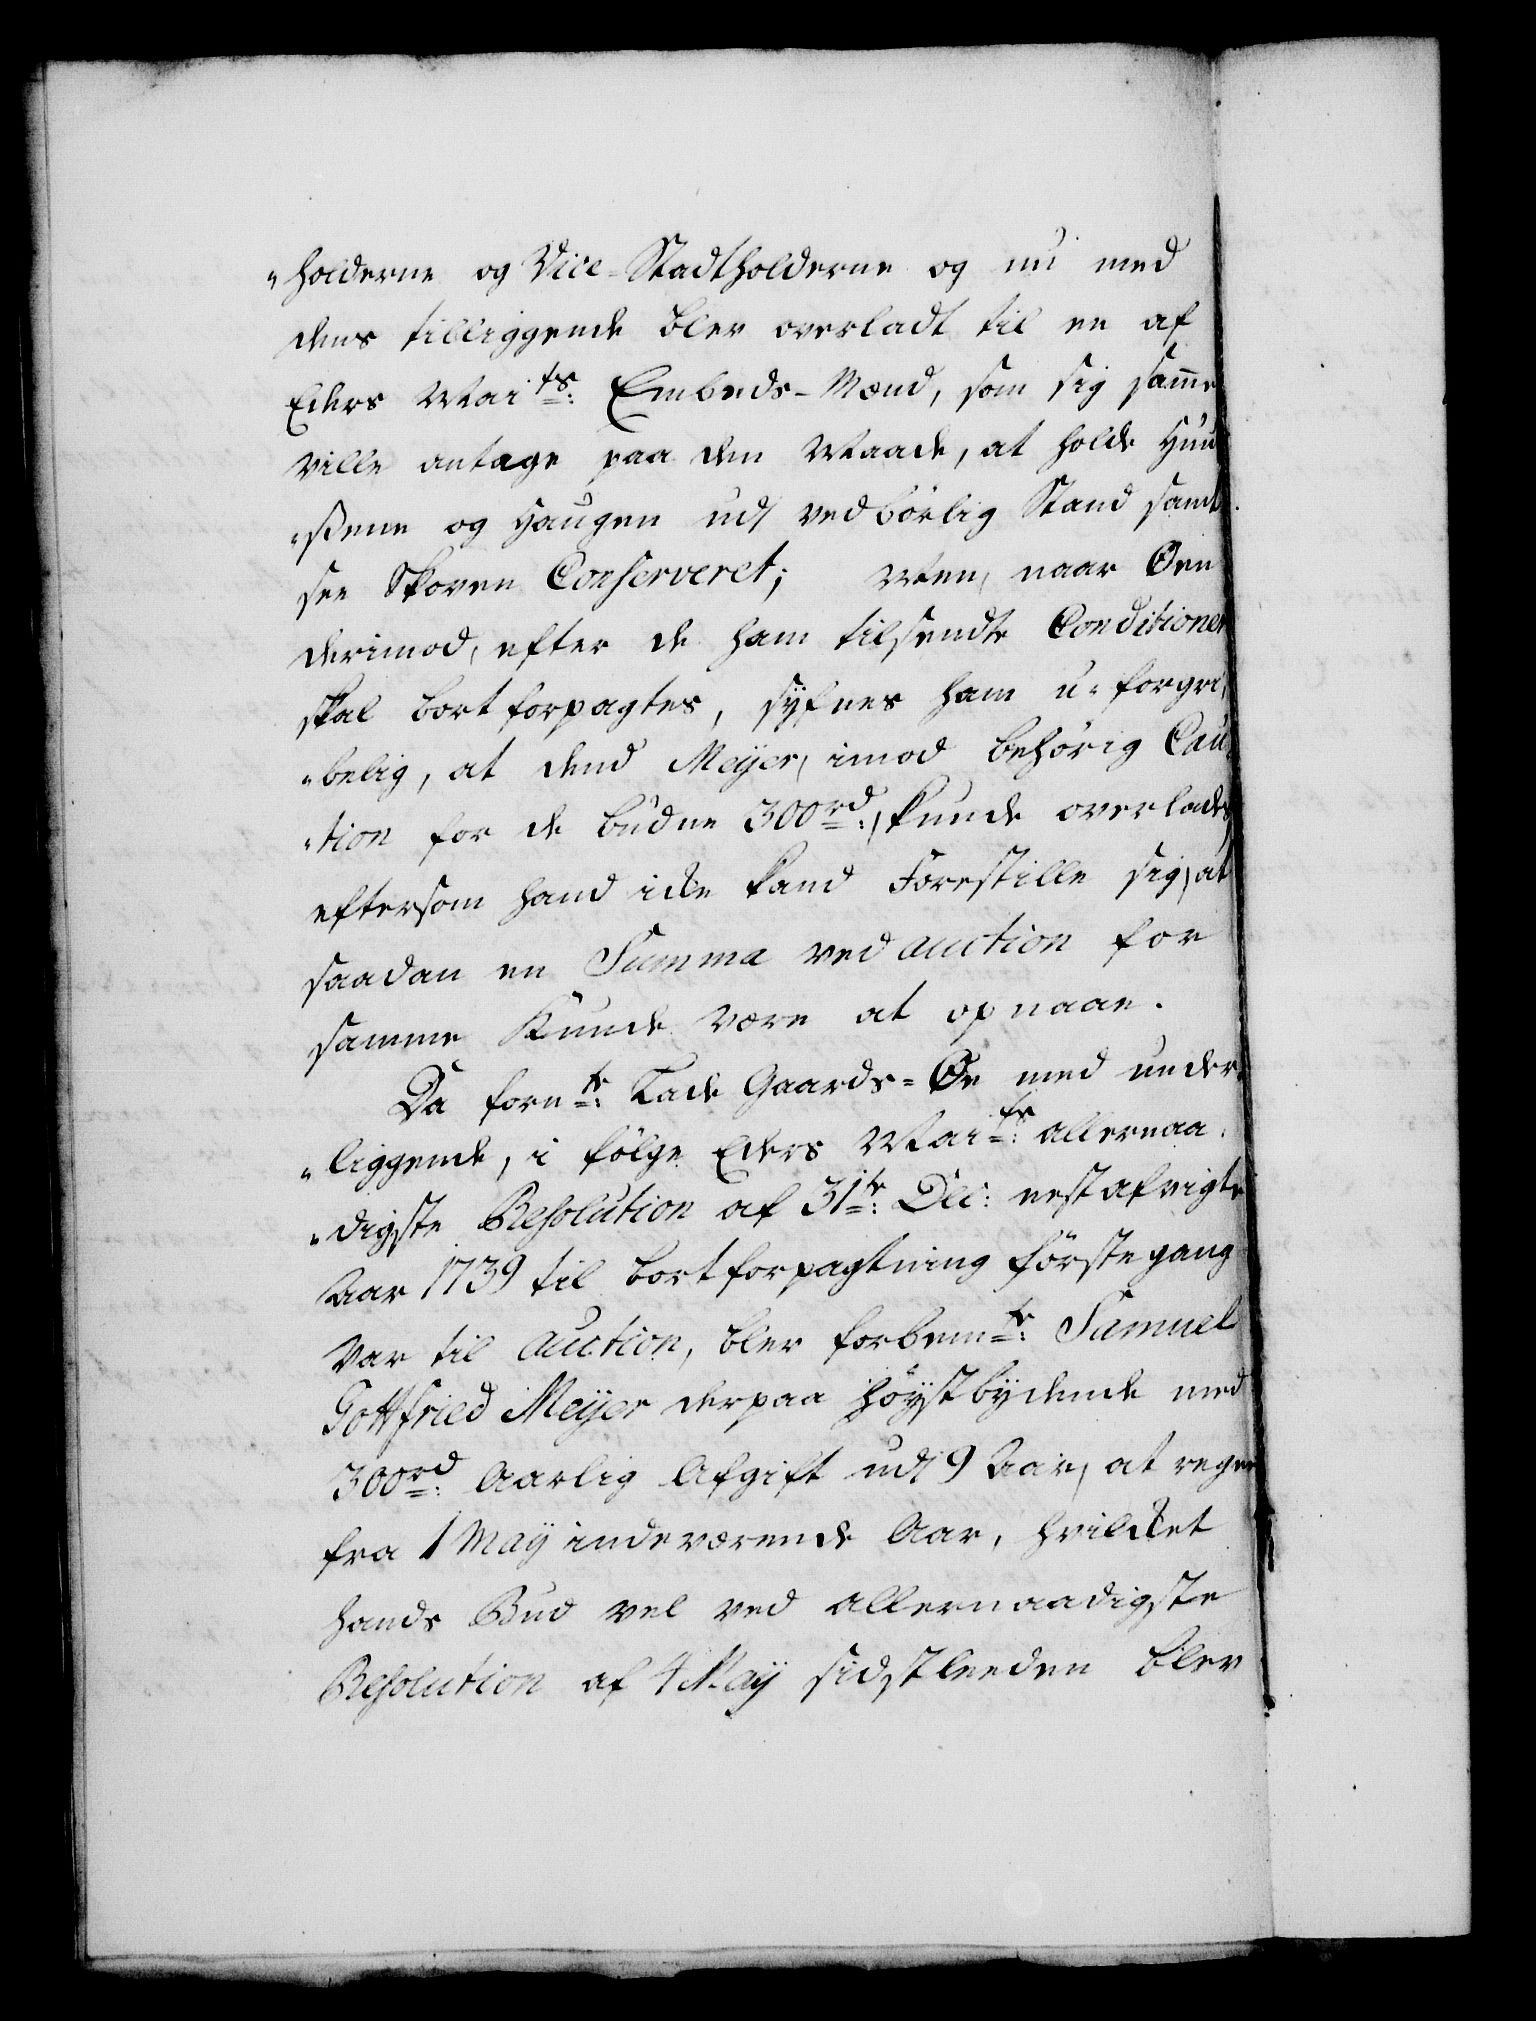 "holderne og Vice-Stadtholderne og nu med
dens tilliggende blev overladt til en af
Eders Maits: Embeds-Mænd, som sig samme
ville antage paa den Maade, at holde Huu
"ßene og Haugen udj vedbörlig Stand samt
see Skoven Conserveret; Men, naar Øen
derimod, efter de ham tilsendte Conditioner
skal bortforpagtes, sÿfnes ham u-forgri,
"belig, at dend Meÿer, imod behörig Cau
"tion for de budne 300rd:, kunde overlades,
eftersom hand icke kand Forestille sig, at
saadan en Summa ved auction for
samme Kunde være at opnaae.
Da fornte: Lade Gaards=Øe med under
"liggende, i fölge Eders Maits: allernaa
"digste Resolution af 31te: Dec: nestafvigte
Aar 1739 til bortforpagtning förstegang
var til auction, blev forbemte: Samuel
Gottfried Meÿer derpaa höÿstbÿdende med
300rd: Aarlig Afgift udj 9 Aar, at regne
fra 1 Maÿ indeværende Aar, hvilcket
hands Bud vel ved allernaadigste
Resolution af 4 Maÿ sidstleeden blev